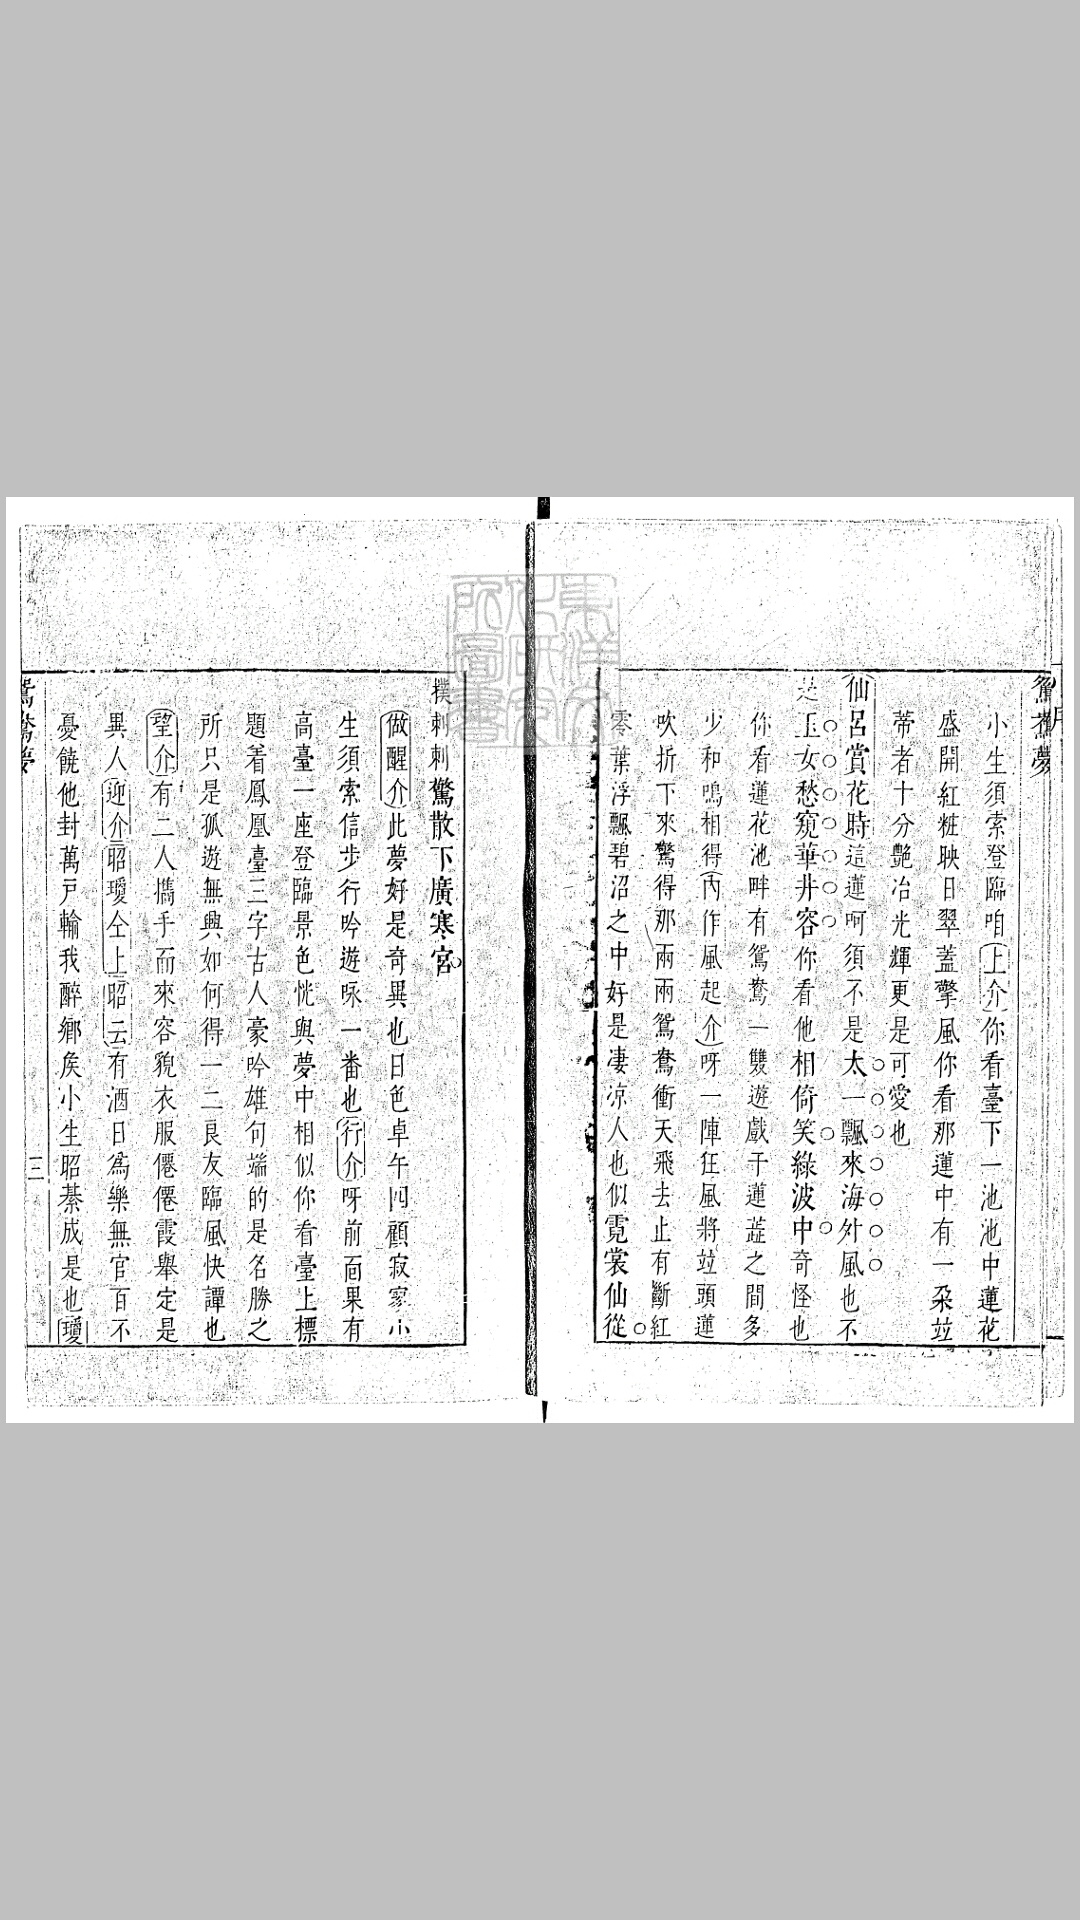 鴛鴦夢
小生須索登臨咱上介你看臺下一池池中蓮花
盛開紅粧映日翠蓋擎風你看那蓮中有一朶竝
蒂者十分艷冶光輝更是可愛也
仙呂賞花時這蓮呵須不是太一飄來海外風也不
是玉女愁窺華井容你看他相倚笑綠波中奇怪也
你看蓮花池畔有鴛鴦一雙遊戲于蓮蕋之間多
少和鳴相得內作風起介呀一陣狂風將竝頭蓮
吹折下來驚得那兩兩鴛鴦衝天飛去止有斷紅
零葉浮飄碧沼之中好是凄凉人也似霓裳仙從
撲剌剌驚散下廣寒宮
做醒介此夢好是奇異也日色卓午四顧寂寥小
生須索信步行吟遊咏一番也行介呀前面果有
高臺一座登臨景色恍與夢中相似你看臺上標
題着鳳凰臺三字古人豪吟雄句端的是名勝之
所只是孤遊無興如何得一二良友臨風快譚也
望介有二人攜手而來容貌衣服僊僊霞舉定是
異人迎介昭瓊仝上昭云有酒日爲樂無官百不
憂饒他封萬戶輸我醉鄉矦小生昭綦成是也瓊
鴛鴦夢
三
東洋文化研究所圖書